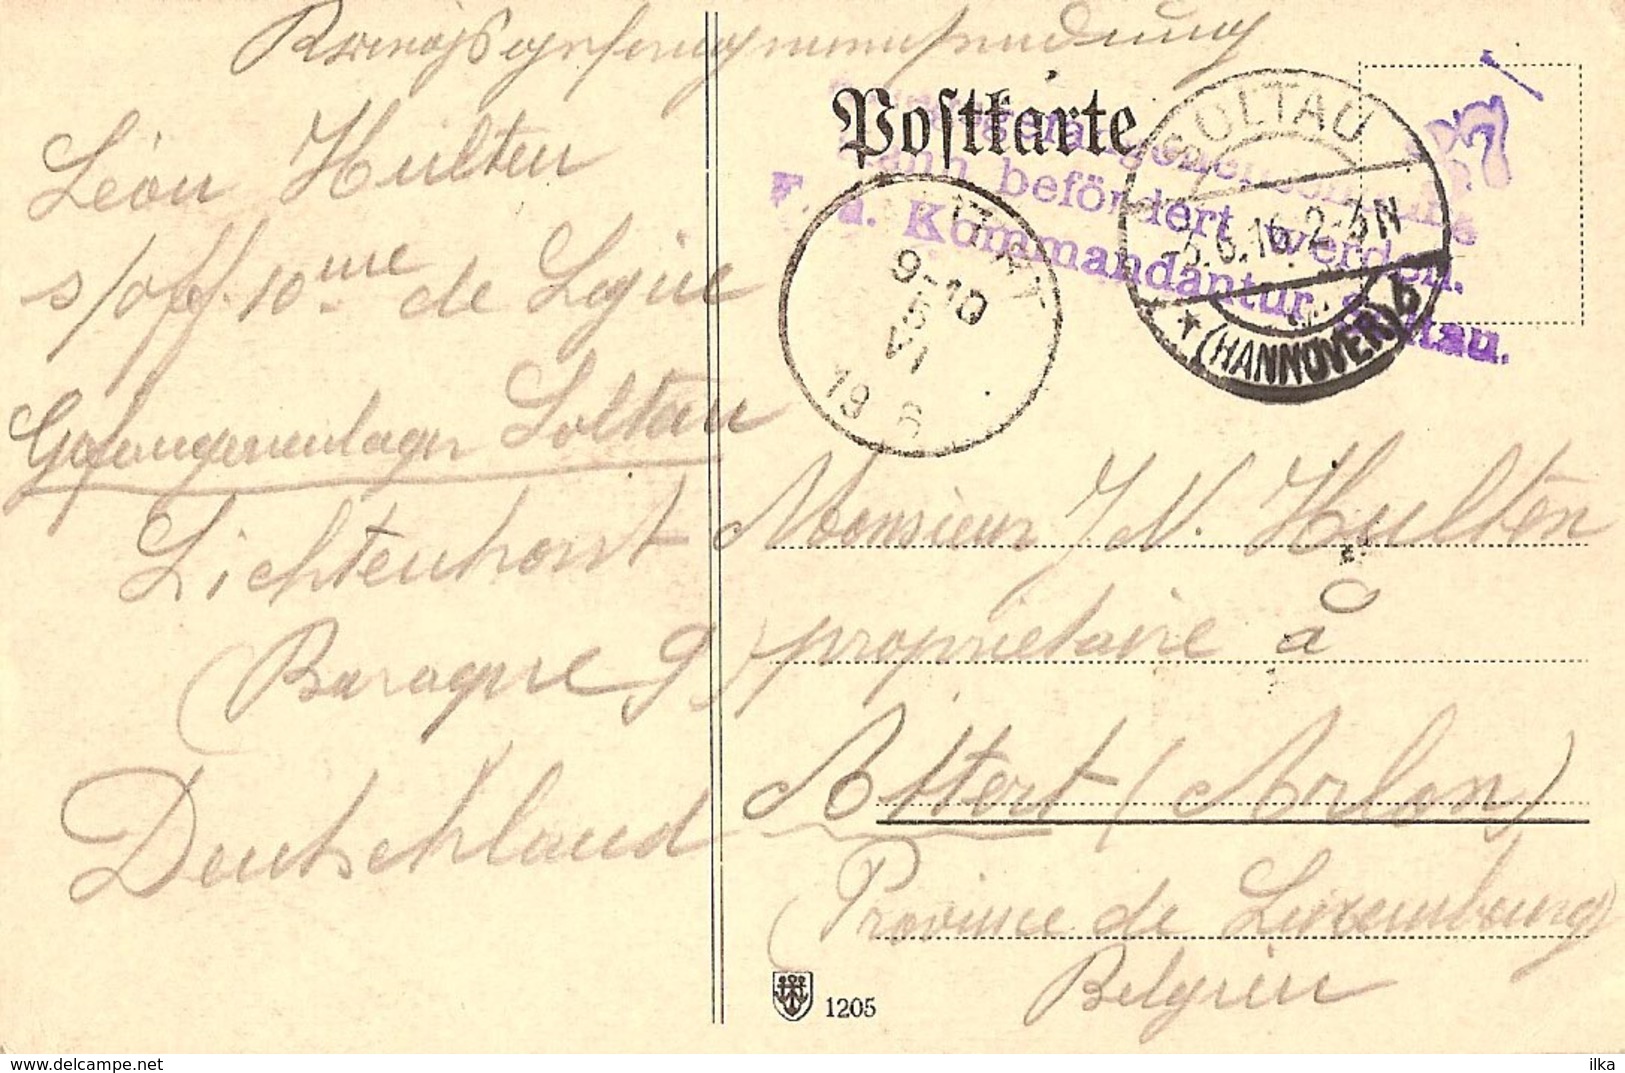 Kriegsgefangenensendung
Léon Hulten
s/off. 10me de Ligne
Gefangenenlager Soltau
Lichtenhorst
(Baraque 9)
Deutschland
Postkarte
kann befördert werden.
F. a. Kommandantur Soltau.
SOLTAU
5.6.16. 2-3N
* * (HANNOVER) b
9-10
5
VI
Monsieur J. N. Hulten
propriétaire à
Attert (Arlon)
(Province de Luxembourg)
Belgien
1205
http://www.delcampe.net
ilka